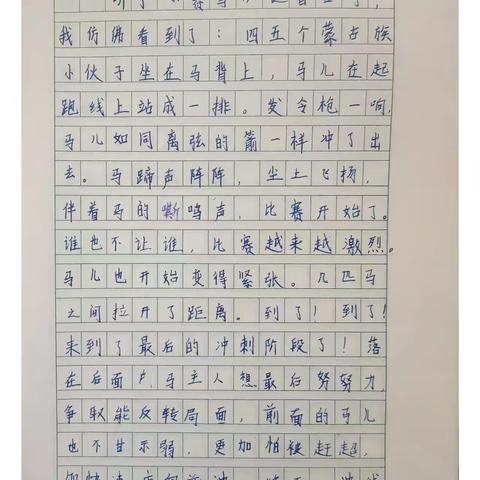 我仿佛看到了：四五个蒙古族
小伙子坐在马背上，马儿在起
跑线上站成一排。发令枪一响，
马儿如同离弦的箫一样冲了出
去。马蹄声阵阵，尘土飞扬，
伴着马的嘶鸣声，比赛开始了。
谁也不让谁，比赛越来越激烈。
马儿也开始变得紧张。几匹马
之间拉开了距离。到了！到了！
来到了最后的冲刺阶段了！落
在后面户马主人想最后努努力，
争取能反转局面，前面的马儿
也不甘示弱，更加怕被赶超，